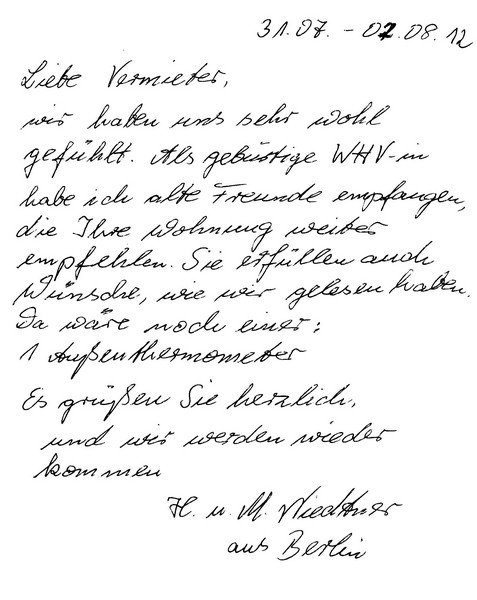 31.07. - 07.08.12
Liebe Vermieter,
wir haben uns sehr wohl
gefühlt. Als gebürtige WHV-in
habe ich alte Freunde empfangen,
die Ihre Wohnung weiter
empfehlen. Sie erfüllen auch
Wünsche, wie wir gelesen haben.
Da wäre noch einer:
1 Außenthermometer
Es grüßen Sie herzlich,
und wir werden wieder
kommen
H. u. M.
aus Berlin